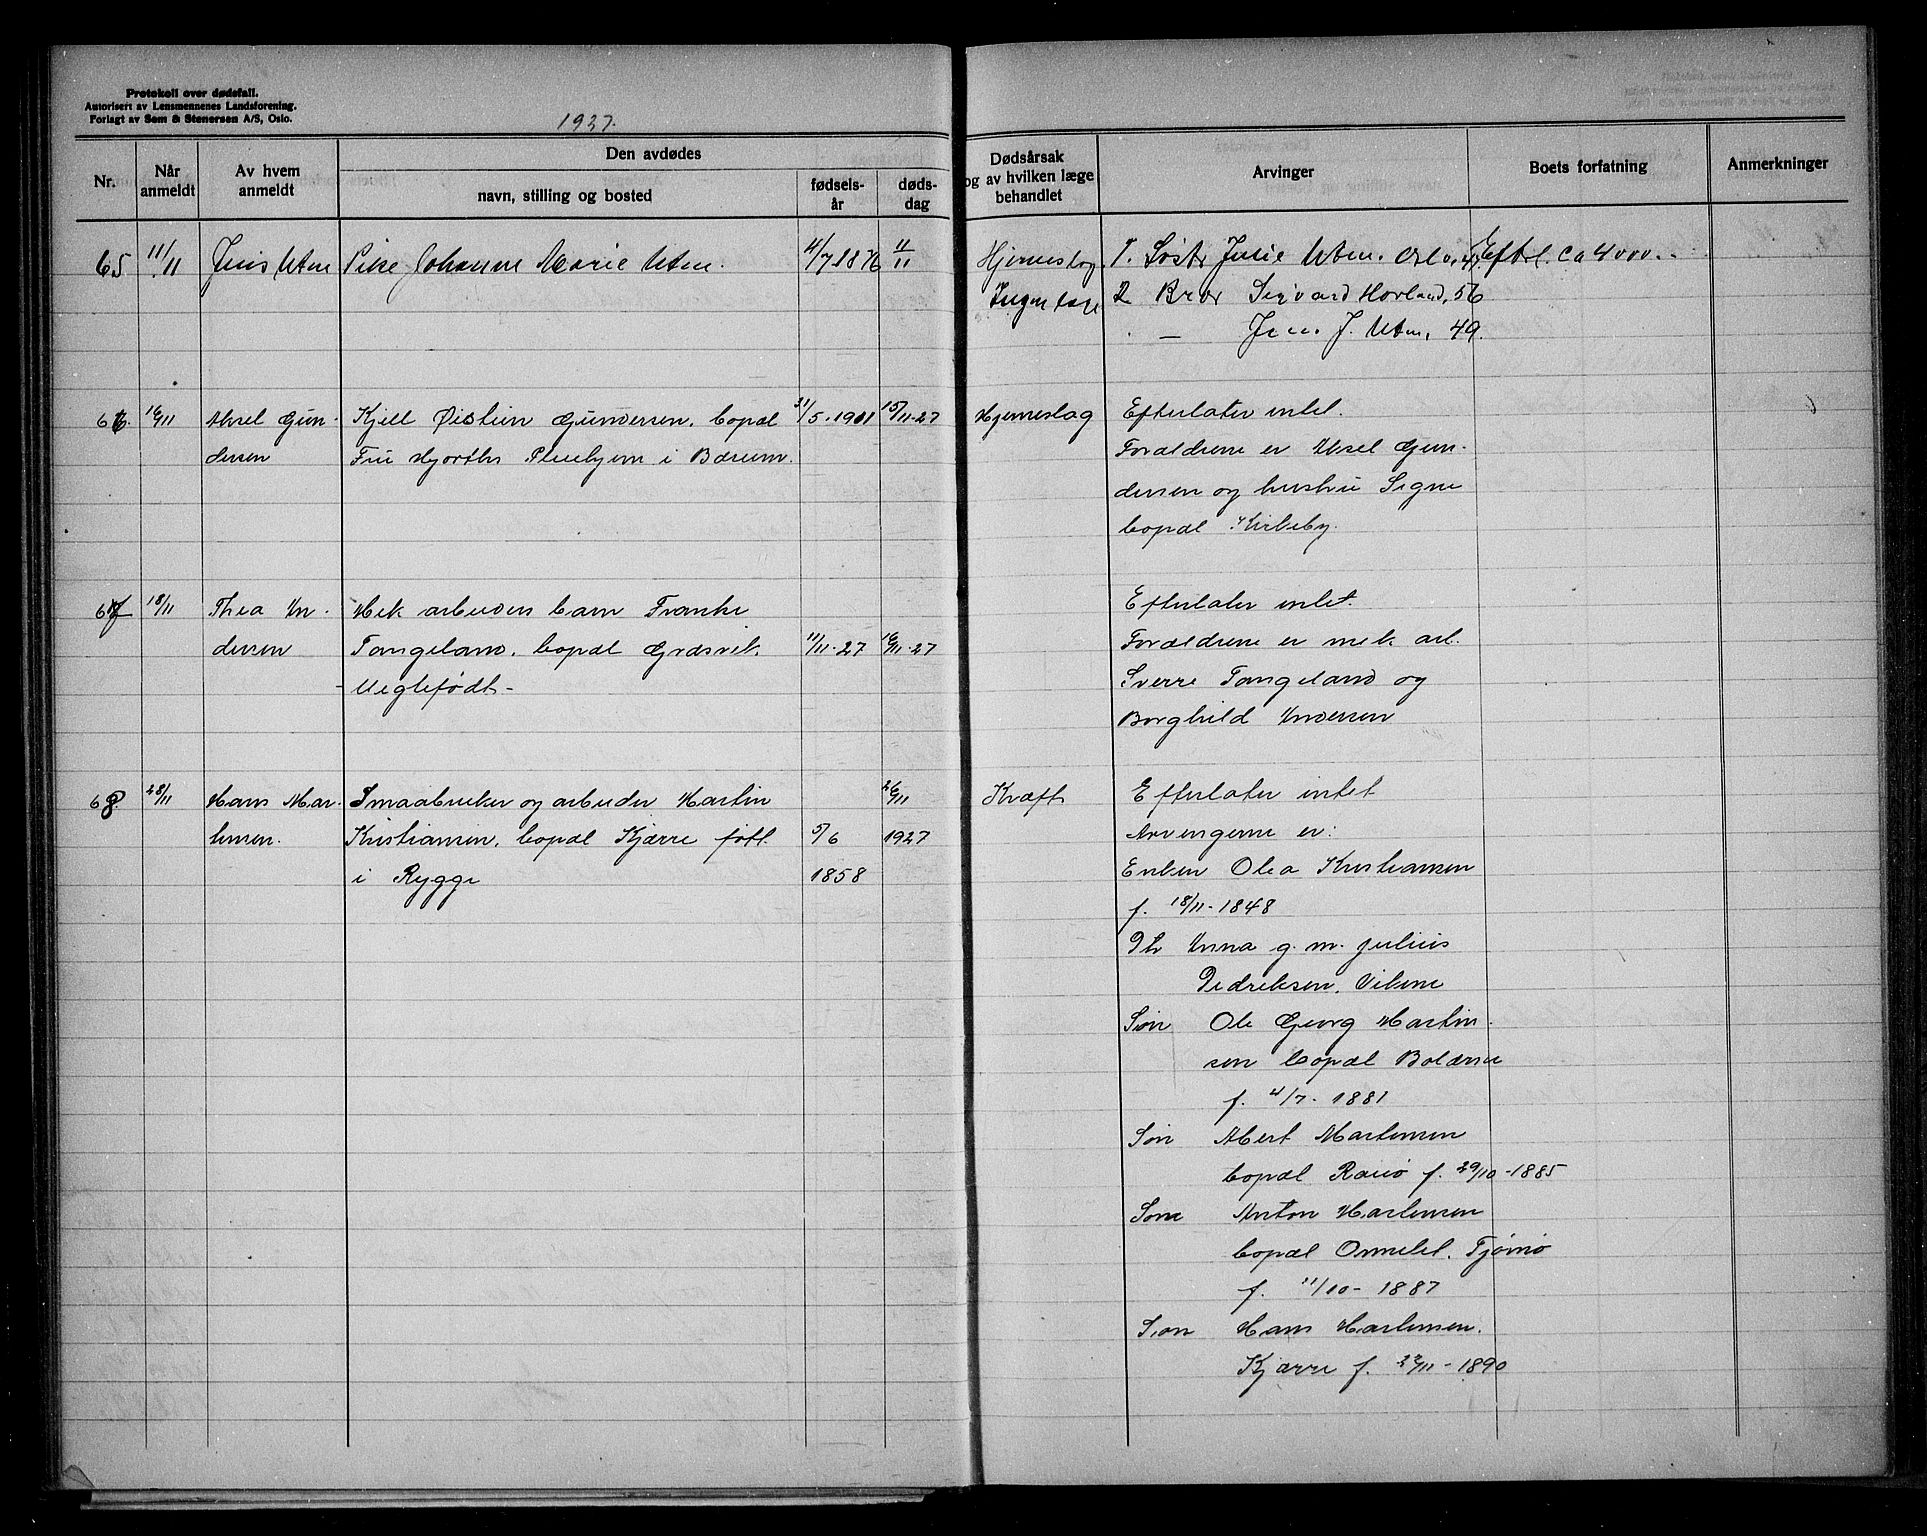 Protokoll over dødsfall.
Autorisert av Lensmennenes Landsforening.
Forlagt av Sem & Stenersen A/S, Oslo.
1927.
Nr.
Når anmeldt
Av hvem anmeldt
Den avdødes
navn, stilling og bosted
fødsels-år
døds-dag
Dødsårsak og av hvilken læge behandlet
Arvinger
Boets forfatning
Anmerkninger
65 11/11 Jens Utne Pike Johanne Marie Utne. 4/7 1876 11/11 Hjerneslag 1. Søster Julie Utne. Oslo, Efterl. ca 4000.
Ingen læge 2 Bror Sigvard Hovland, 56
- Jens J. Utne, 49.
66 16/11 Aksel Gun- Kjell Øistein Gundersen, bopæl 21/5-1901 15/11-27 Hjerneslag Efterlater intet.
dersen Fru Hjorths Pleiehjem i Bærum. Forældrene er Aksel Gun-
dersen og hustru Signe
bopæl Kirkeby.
67 18/11 Thea An- Mek arbeiders barn Franke Efterlater intet.
dersen Tangeland, bopæl Græsvik. 11/11-27 16/11-27 Forældrene er mek arb.
- Uegtefødt - Sverre Tangeland og
Borghild Andersen
68. 28/11 Hans Mar- Smaabruker og arbeider Martin 26/11 Kræft Efterlater intet
tinsen. Kristiansen, bopæl Kjærre født 5/6 1927 Arvingerne er:
i Rygge 1858 Enken Olea Kristiansen
f. 18/11-1848
Dt Anna g. m. Julius
Pedriksen, Vikene
Søn Ole Georg Martin-
sen bopæl
f. 4/7-1881
Søn Albert Martinsen
bopæl Rauø f. 29/10-1885
Søn Anton Martinsen
bopæl Ormelet. Tjømø
f. 11/10-1887
Søn Hans Martinsen.
Kjærre f. 22/11-1890